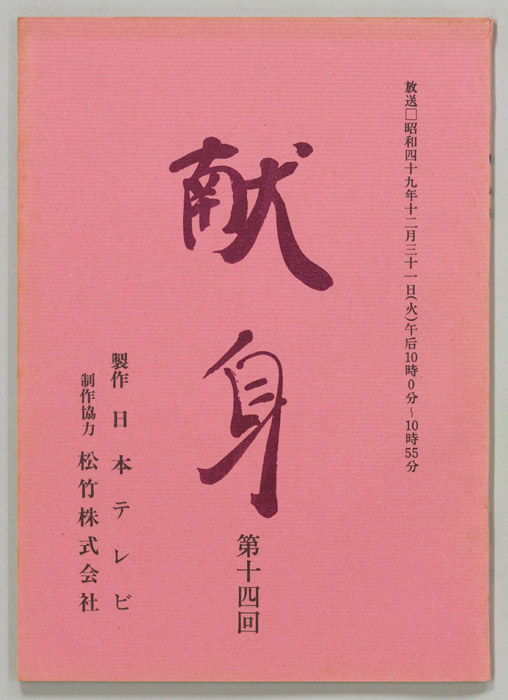 放送□昭和四十九年十二月三十一日(火)午后10時0分~10時55分
献身
第十四回
製作 日本テレビ
制作協力 松竹株式会社